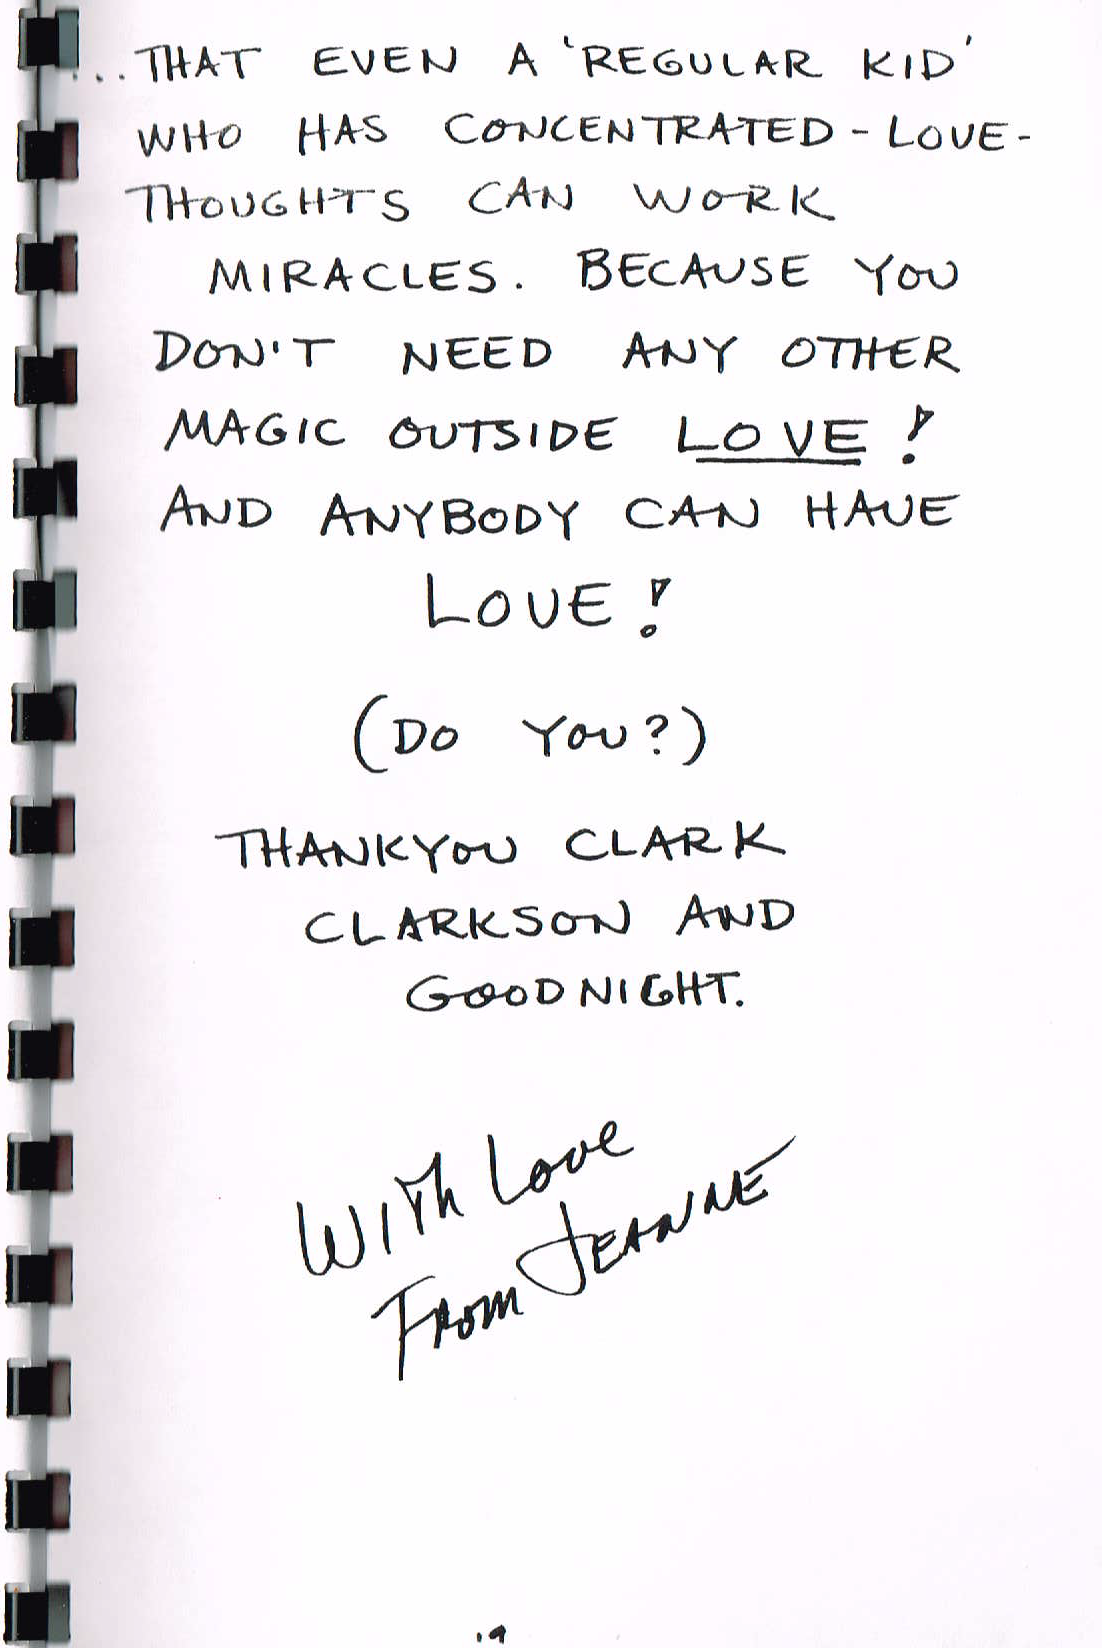 ...THAT EVEN A 'REGULAR KID'
WHO HAS CONCENTRATED-LOVE-
THOUGHTS CAN WORK
MIRACLES. BECAUSE YOU
DON'T NEED ANY OTHER
MAGIC OUTSIDE LOVE!
AND ANYBODY CAN HAVE
LOVE!
(DO YOU?)
THANKYOU CLARK
CLARKSON AND
GOODNIGHT.
With Love
From JEANNE
.9